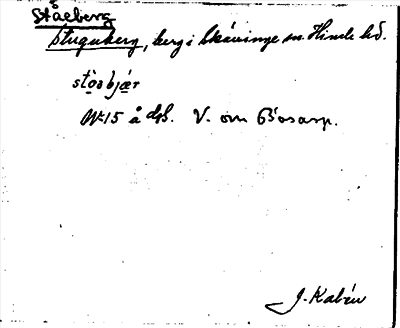 Ståeberg
Stuguberg, berg i Skävinge sn. Himle hd.
stòəbjær
Nr 15 å dsk. V. om Bosarp.
J. Kalén